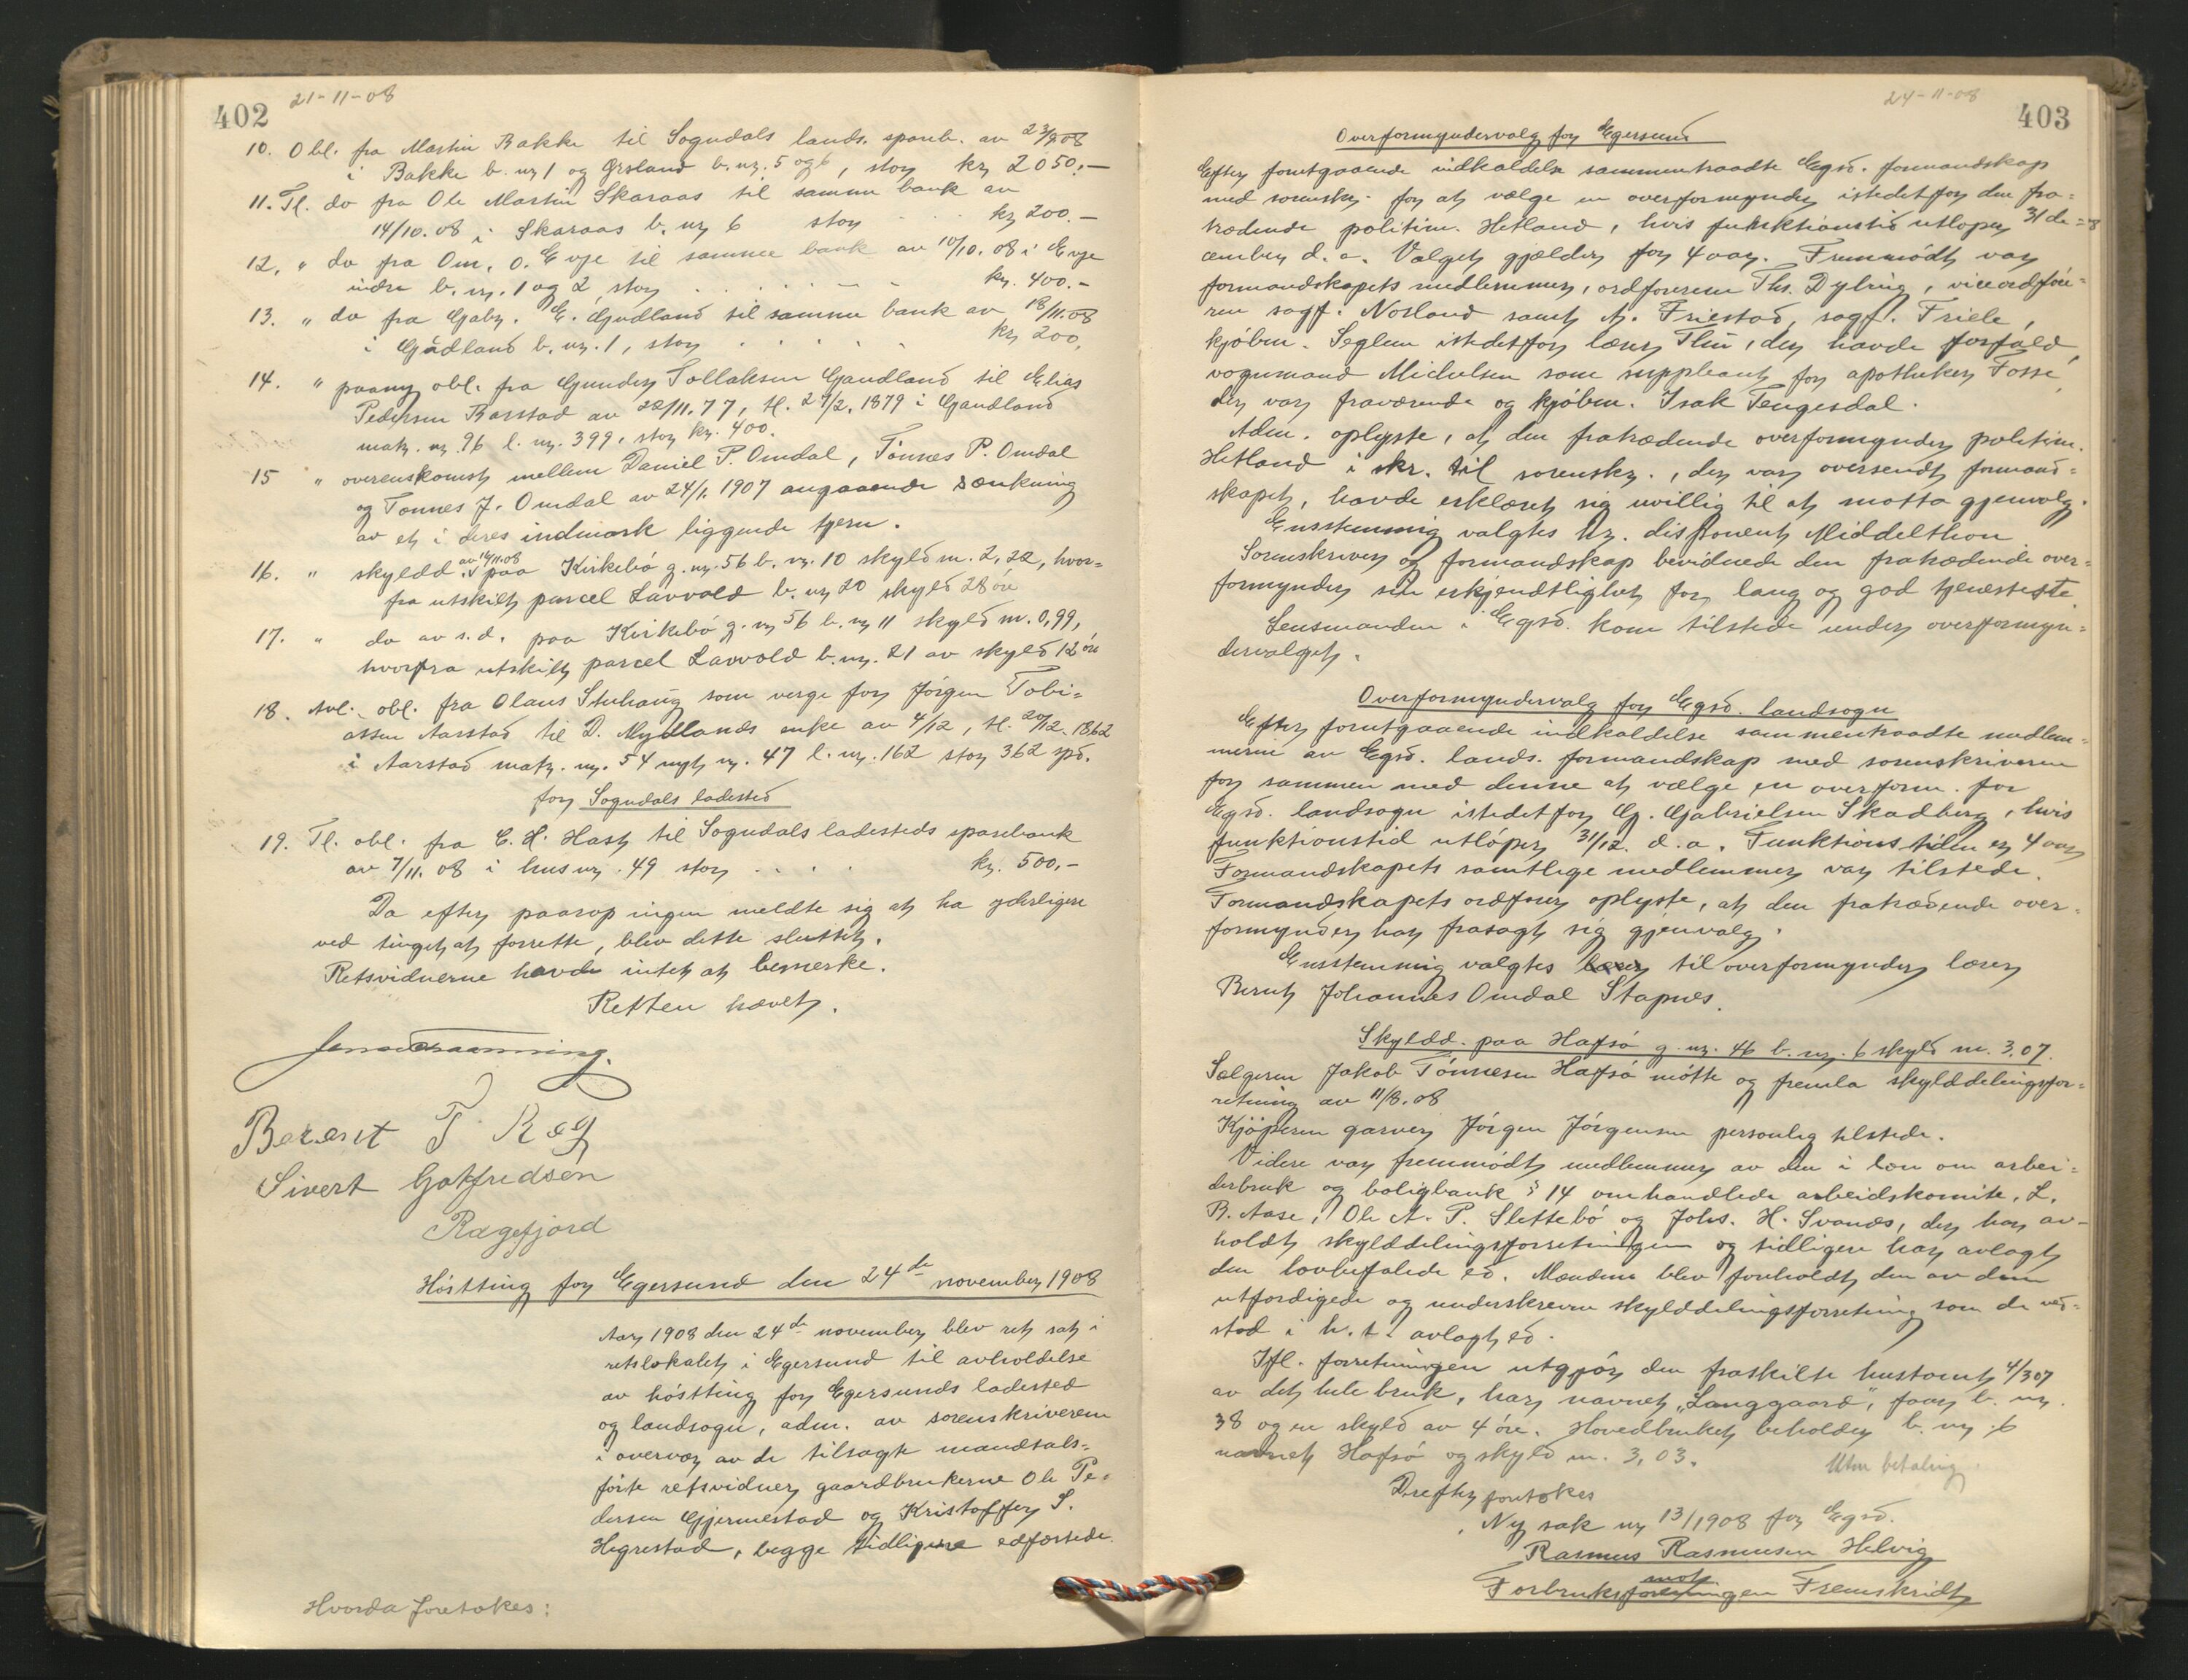 402
21-11-08
10. Obl. fra Martin Bakke til Sogndals lands. spareb. av 23/9 08
i Bakke b. nr 1 og Örsland b. nr. 5 og 6, stor kr 2050.-
11. Tl. do fra Ole Martin Skaraas til samme bank av
14/10. 08 i Skaraas b. nr 6 stor . . kr 200.-
12. " do fra Om. O. Evje til samme bank av 10/10. 08 i Evje
indre b. nr. 1 og 2 stor . . . . . - kr. 400.-
13. " do fra Gabr. E. Gudland til samme bank av 18/11.08
i Gådland b. nr. 1, stor . . . . . kr 200,
14. " paany obl. fra Gunder Tollaksen Gaudland til Elias
Pedersen Barstad av 22/11.77, tl. 27/2. 1879 i Gaudland
matr. nr 96 l. nr. 399, stor kr. 400.
15 " overenskomst mellem Daniel P. Omdal, Tönnes P. Omdal
og Tönnes J. Omdal av 24/1. 1907 angaaende sænkning
av et i deres indmark liggende tjern.
16. " skyldd. av 14/11.08 paa Kirkebö g. nr. 56 b. nr. 10 skyld m. 2,22, hvor=
fra utskilt parcel Lavvold b. nr 20 skyld 28 öre
17. " do av s. d. paa Kirkebö g. nr 56 b. nr 11 skyld m. 0,99,
hvorfra utskilt parcel Lavvold b. nr. 21 av skyld 12 öre
18. Avl. obl. fra Olaus Stuhaug som verge for Jörgen Tobi=
assen Aarstad til D. Mydlands enke av 4/12, tl. 20/12. 1862
i Aarstad matr. nr. 54 nyt nr. 47 l. nr. 162 stor 362 spd.
for Sogndals ladested
19. Tl. obl. fra C. H. Hast til Sogndals ladesteds sparebank
av 7/11. 08 i hus nr. 49 stor . . . . kr. 500.-
Da efter paarop ingen meldte sig at ha yderligere
ved tinget at forrette, blev dette sluttet.
Retsvidnerne havde intet at bemerke.
Retten hævet.
Berent T. Reg
Sivert Gotfredsen
Rægefjord
Höstting for Egersund den 24de november 1908
Aar 1908 den 24de november blev ret sat i
retslokalet i Egersund til avholdelse
av höstting for Egersunds ladested
og landsogn, adm. av sorenskriveren
i overvær av de tilsagte mandtals=
förte retsvidner gaardbrukerne Ole Pe=
dersen Gjermestad og Kristoffer S.
Hegrestad, begge tidligere edfæstede.
Hvorda foretokes:
24-11-08
403
Overformyndervalg for Egersund
Efter forutgaaende indkaldelse sammentraadte Egsd. formandskap
med sorenskr. for at vælge en overformynder istedetfor den fra=
trædende politim. Hetland, hvis funktionstid utloper 31 de=
cember d. a. Valget gjælder for 4 aar. Fremmödt var
formandskapets medlemmer, ordföreren Ths. Dybing, viceordföre=
ren sagf. Nosland samt A. Friestad, sagf. Friele,
kjöbm. Seglem istedetfor lærer Thu, der havde forfald,
vognmand Michelsen som suppleant for apotheker Fosse,
der var fraværende og kjöbm. Isak Tengesdal.
Adm. oplyste, at den fratrædende overformynder politim.
Hetland i skr. til sorenskr., der var oversendt formand=
skapet, havde erklæret sig uvillig til at motta gjenvalg.
Enstemmig valgtes hr. disponent Middelthon
Sorenskriver og formandskap bevidnede den fratrædende over=
formynder sin erkjendtlighet for lang og god tjeneste.
Lensmanden i Egsd. kom tilstede under overformyn=
dervalget.
Overformyndervalg for Egsd. landsogn
Efter forutgaaende indkaldelse sammentraadte medlem=
merne av Egsd. lands. formandskap med sorenskriveren
for sammen med denne at vælge en overform. for
Egsd. landsogn istedetfor G. Gabrielsen Skadberg, hvis
funktionstid utlöper 31/12. d. a. Funktionstiden er 4 aar
Formandskapets samtlige medlemmer var tilstede.
Formandskapets ordförer oplyste, at den fratrædende over=
formynder har frasagt sig gjenvalg.
Enstemmig valgtes til overformynder lærer
Bernt Johannes Omdal Stapnes.
Skyldd. paa Hafsö g. nr. 46 b. nr. 6 skyld m. 3.07.
Sælgeren Jakob Tönnesen Hafsö mötte og fremla skylddelingsfor=
retning av 11/8. 08
Kjöperen garver Jörgen Jörgensen personlig tilstede.
Videre var fremmödt medlemmer av den i lov om arbei=
derbruk og boligbank § 14 omhandlede arbeidskomite, L.
B. Aase, Ole A. P. Slettebö og Johs. H. Svanes, der har av=
holdt skylddelingsforretningen og tidligere har avlagt
den lovbefalede ed. Mændene blev foreholdt den av dem
utfærdigede og underskrevne skylddelingsforretning som de ved=
stod i h. t. avlagt ed.
Ifl. forretningen utgjör den fraskilte hustomt 4/307
av det hele bruk, har navnet „Langgaard", faar b. nr.
38 og en skyld av 4 öre. Hovedbruket beholder b. nr. 6
navnet Hafsö og skyld m. 3,03.
Uten betaling.
Derefter foretokes
Ny sak nr 13/1908 for Egsd.
Rasmus Rasmussen Helvig
mot
Forbruksforeningen Fremskridt